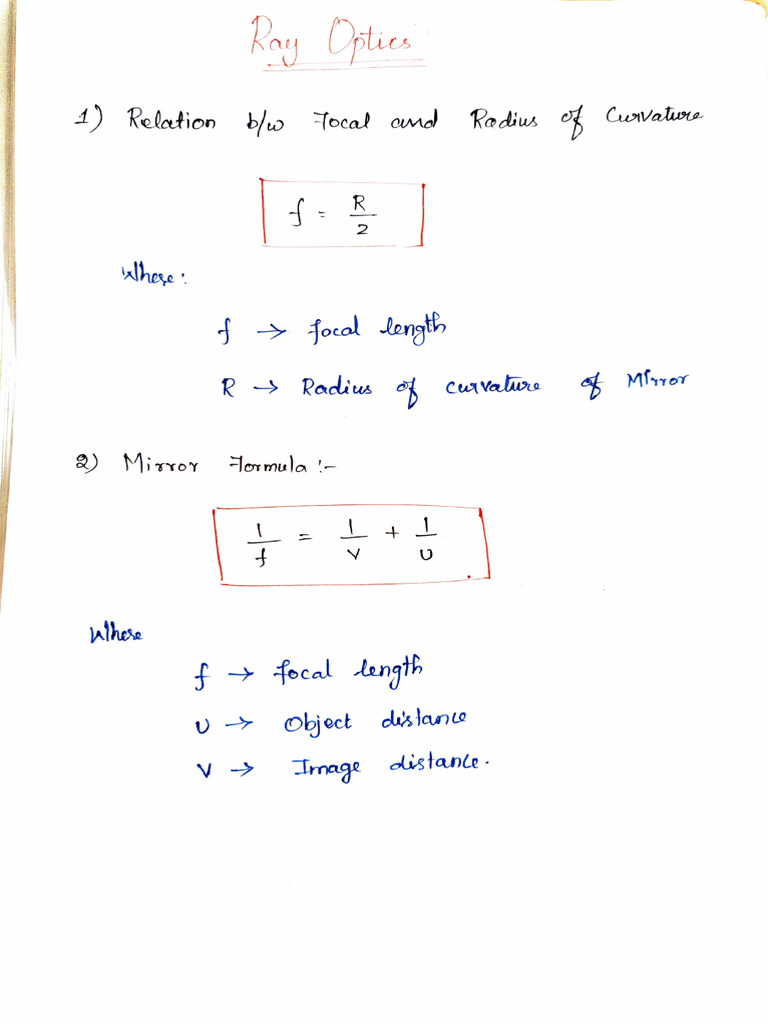 Ray Optics
1) Relation b/w Focal and Radius of Curvature
f = R/2
Where:
f → focal length
R → Radius of curvature of Mirror
2) Mirror Formula :-
1/f = 1/v + 1/u
Where
f → focal length
u → Object distance
v → Image distance.